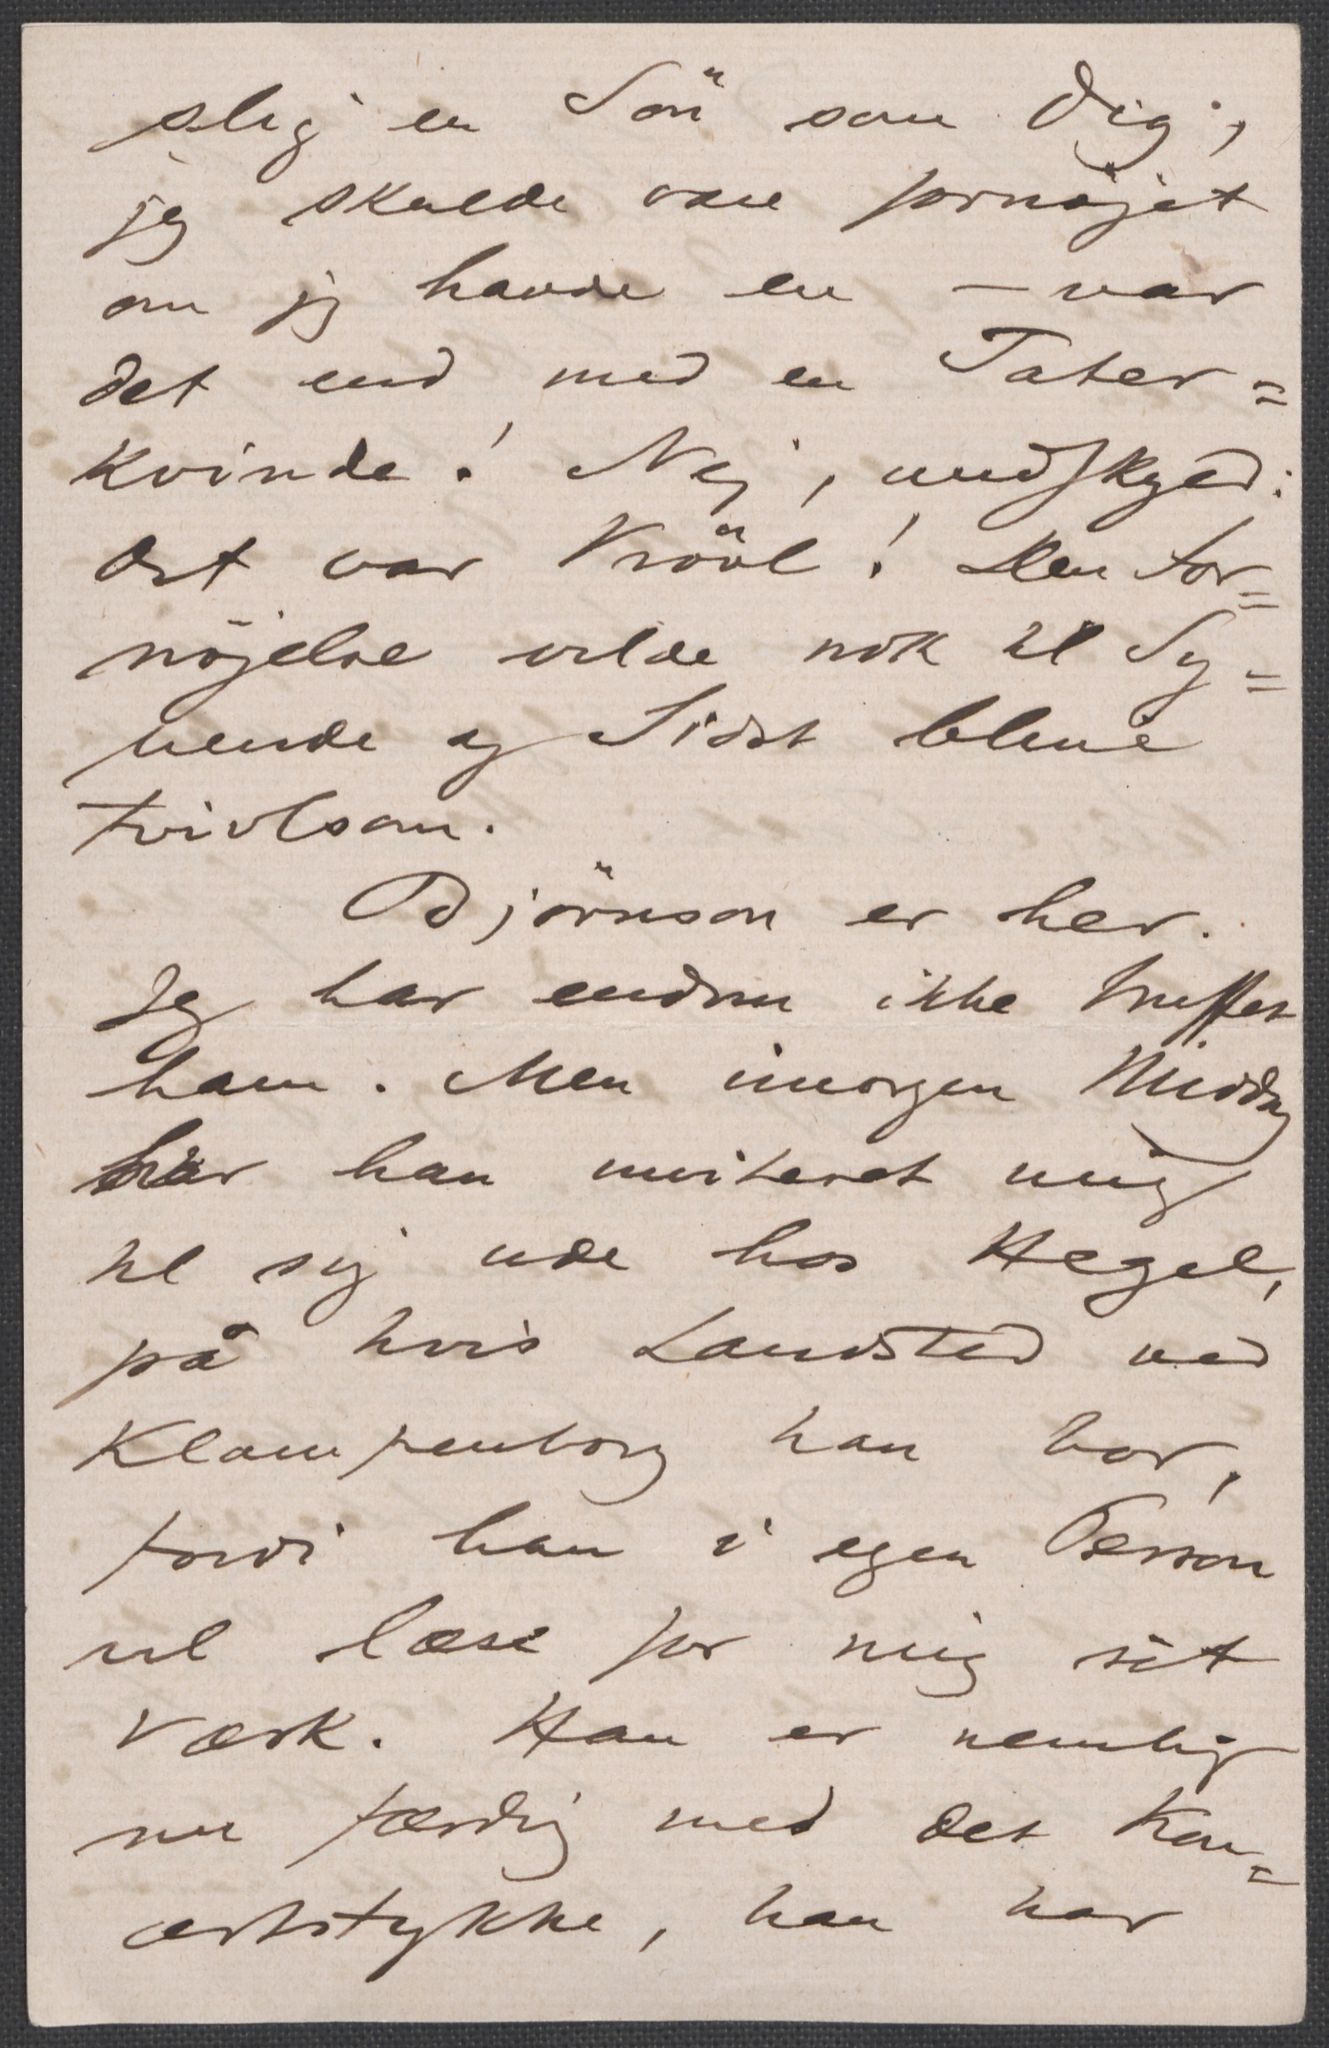 slig en Sön som Dig,
jeg skulde være fornöjet
om jeg havde en – var
det end med en Tater=
kvinde! Nej, undskyld:
det var Vrövl! Den For=
nöjelse vilde nok til Sy=
vende og Sidst blive
tvivlsom.
Björnson er her.
Jeg har endnu ikke truffet
ham. Men imorgen Middag
har han inviteret mig
til sig ude hos Hegel,
på hvis Landsted ved
Klampenborg han bor,
fordi han i egen Person
vil læse for mig sit
Værk. Han er nemlig
nu færdig med det Kon=
certstykke, han har